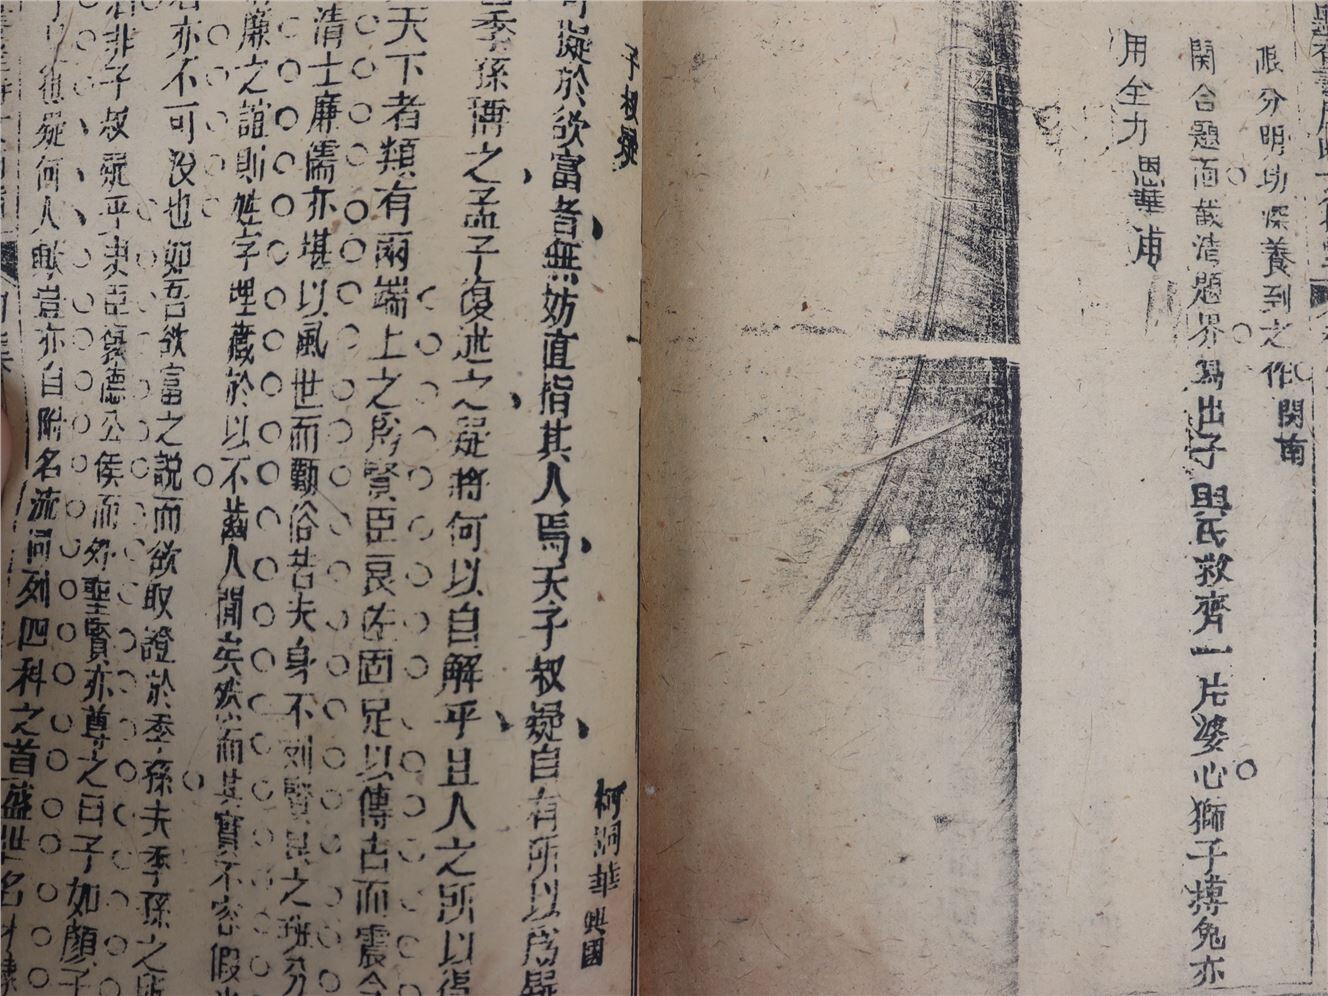 眼分明功深養到之作 関南
関合題面截清題界寫出子輿氏救齊一片婆心獅子搏兔亦
用全力 恩華浦
子叔疑
柯洞華 興國
可疑於欲富者無妨直指其人焉夫子叔疑自有所以為疑
季孫傳之孟子復述之疑將何以自解乎且人之所以得
天下者類有兩端上之為賢臣良佐固足以傳古而震今
清士廉儒亦堪以風世而勵俗若夫身不列賢良之班分
廉之誼則姓字埋藏於以不齒人間矣然而其實不容假
亦不可沒也如吾欲富之說而欲取證於季孫夫季孫之所
非子叔疑乎史臣褒德公侯而外聖賢亦尊之曰子如顏子
也疑何人歟豈亦自附名流同列四科之首盛世名